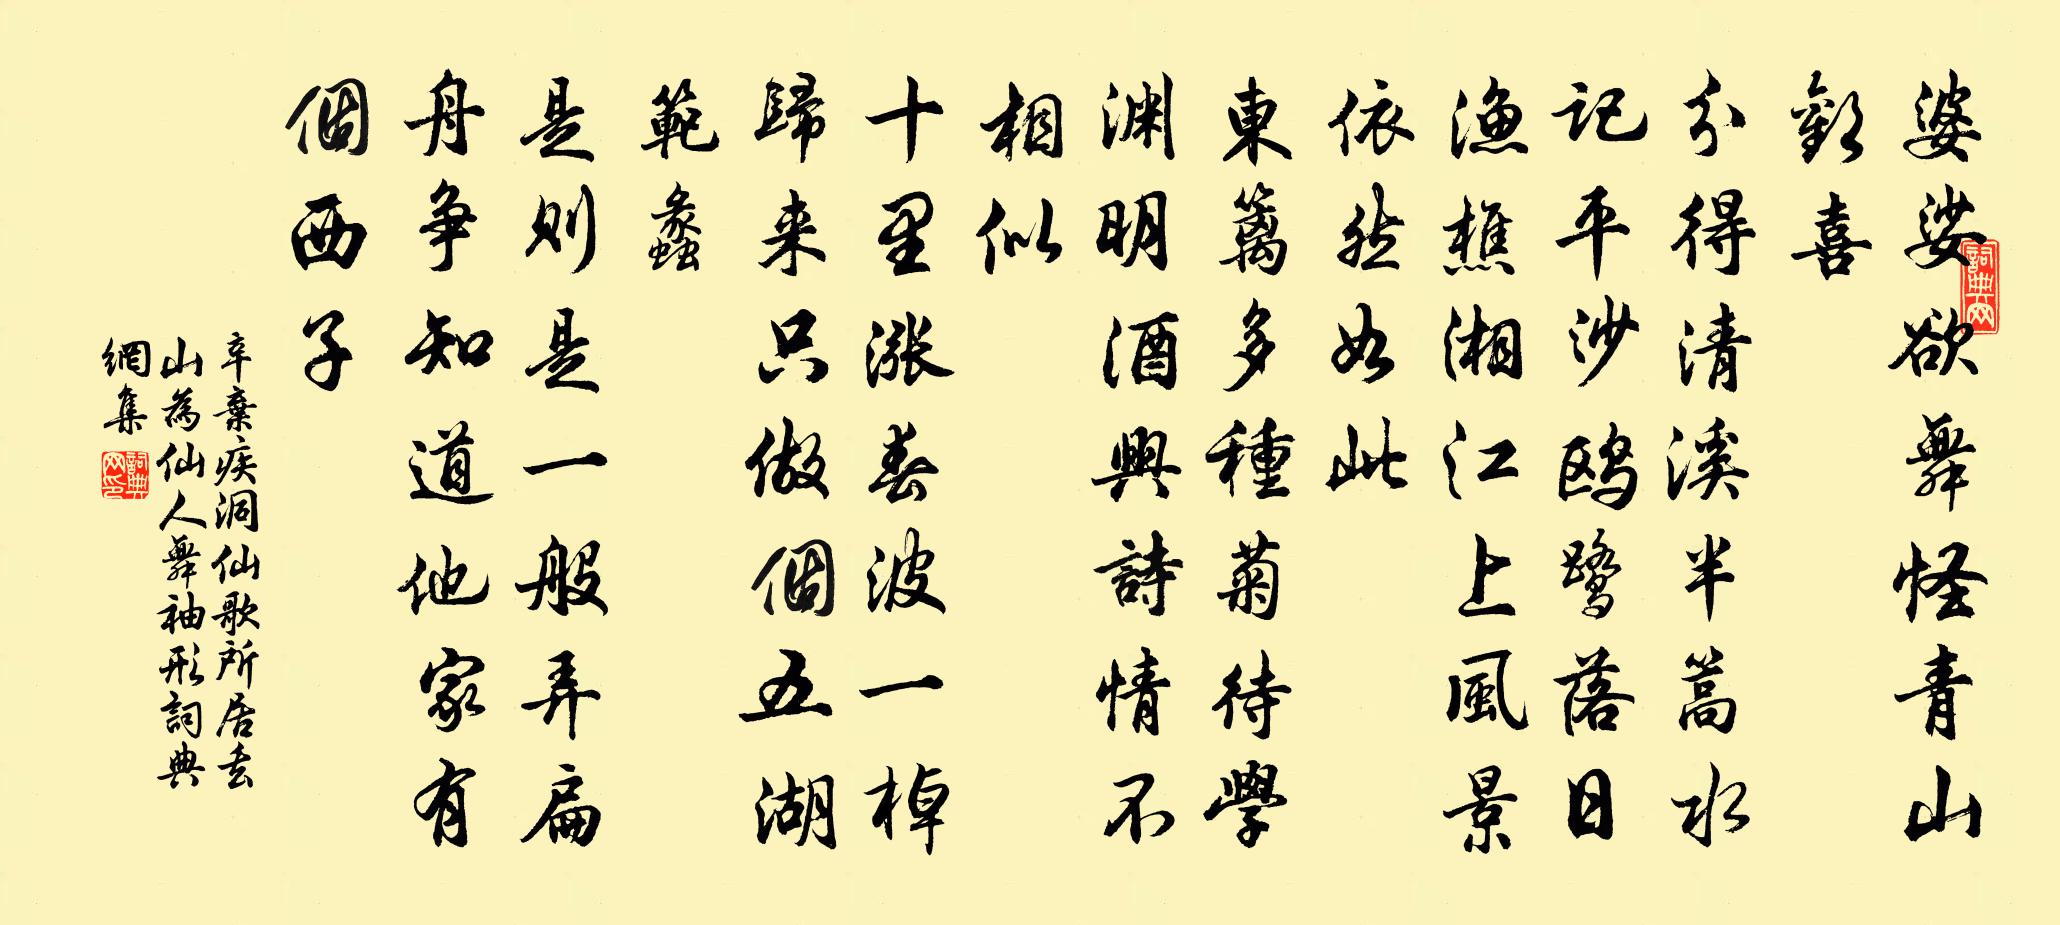 婆娑欲舞怪青山
歡喜
分得清溪半篙水
記平沙鸥鹭落日
漁樵湘江上風景
依然如此
東篱多種菊待學
渊明酒興詩情不
相似
十里漲春波一棹
歸来只做個五湖
範蠡
是則是一般弄扁
舟争知道他家有
個西子
辛棄疾洞仙歌所居丟
山為仙人舞袖形詞典
網集
詞典网
詞典网印